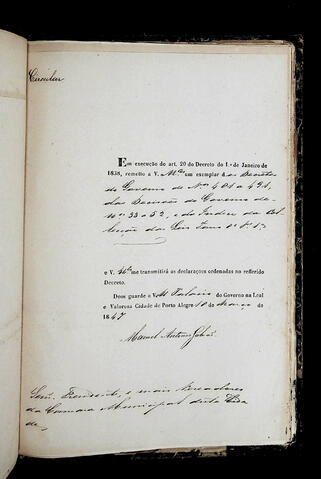 Circular
Em execução do art. 20 do Decreto do 1.º de Janeiro de
1838, remetto a V. M.ces um exemplar dos Decretos
do Governo de N.os 401 a 421,
das Decisões do Governo de
n.os 33 a 52, e do Indice da Col-
lecção das Leis Tomo
e V. M.ces me transmittirá as declarações ordenadas no referido
Decreto.
Deos guarde a V. M. Palacio do Governo na Leal
e Valorosa Cidade de Porto Alegre 10 de Março de
1847
Manoel Antonio Galvão
Senr. Presidente, e mais Vereadores
da Camara Municipal desta Cida
de